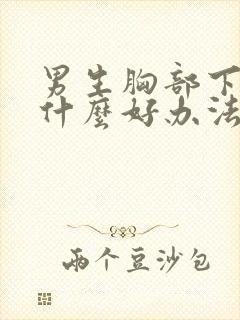 男生胸部下
什麼好办法
兩个豆沙包